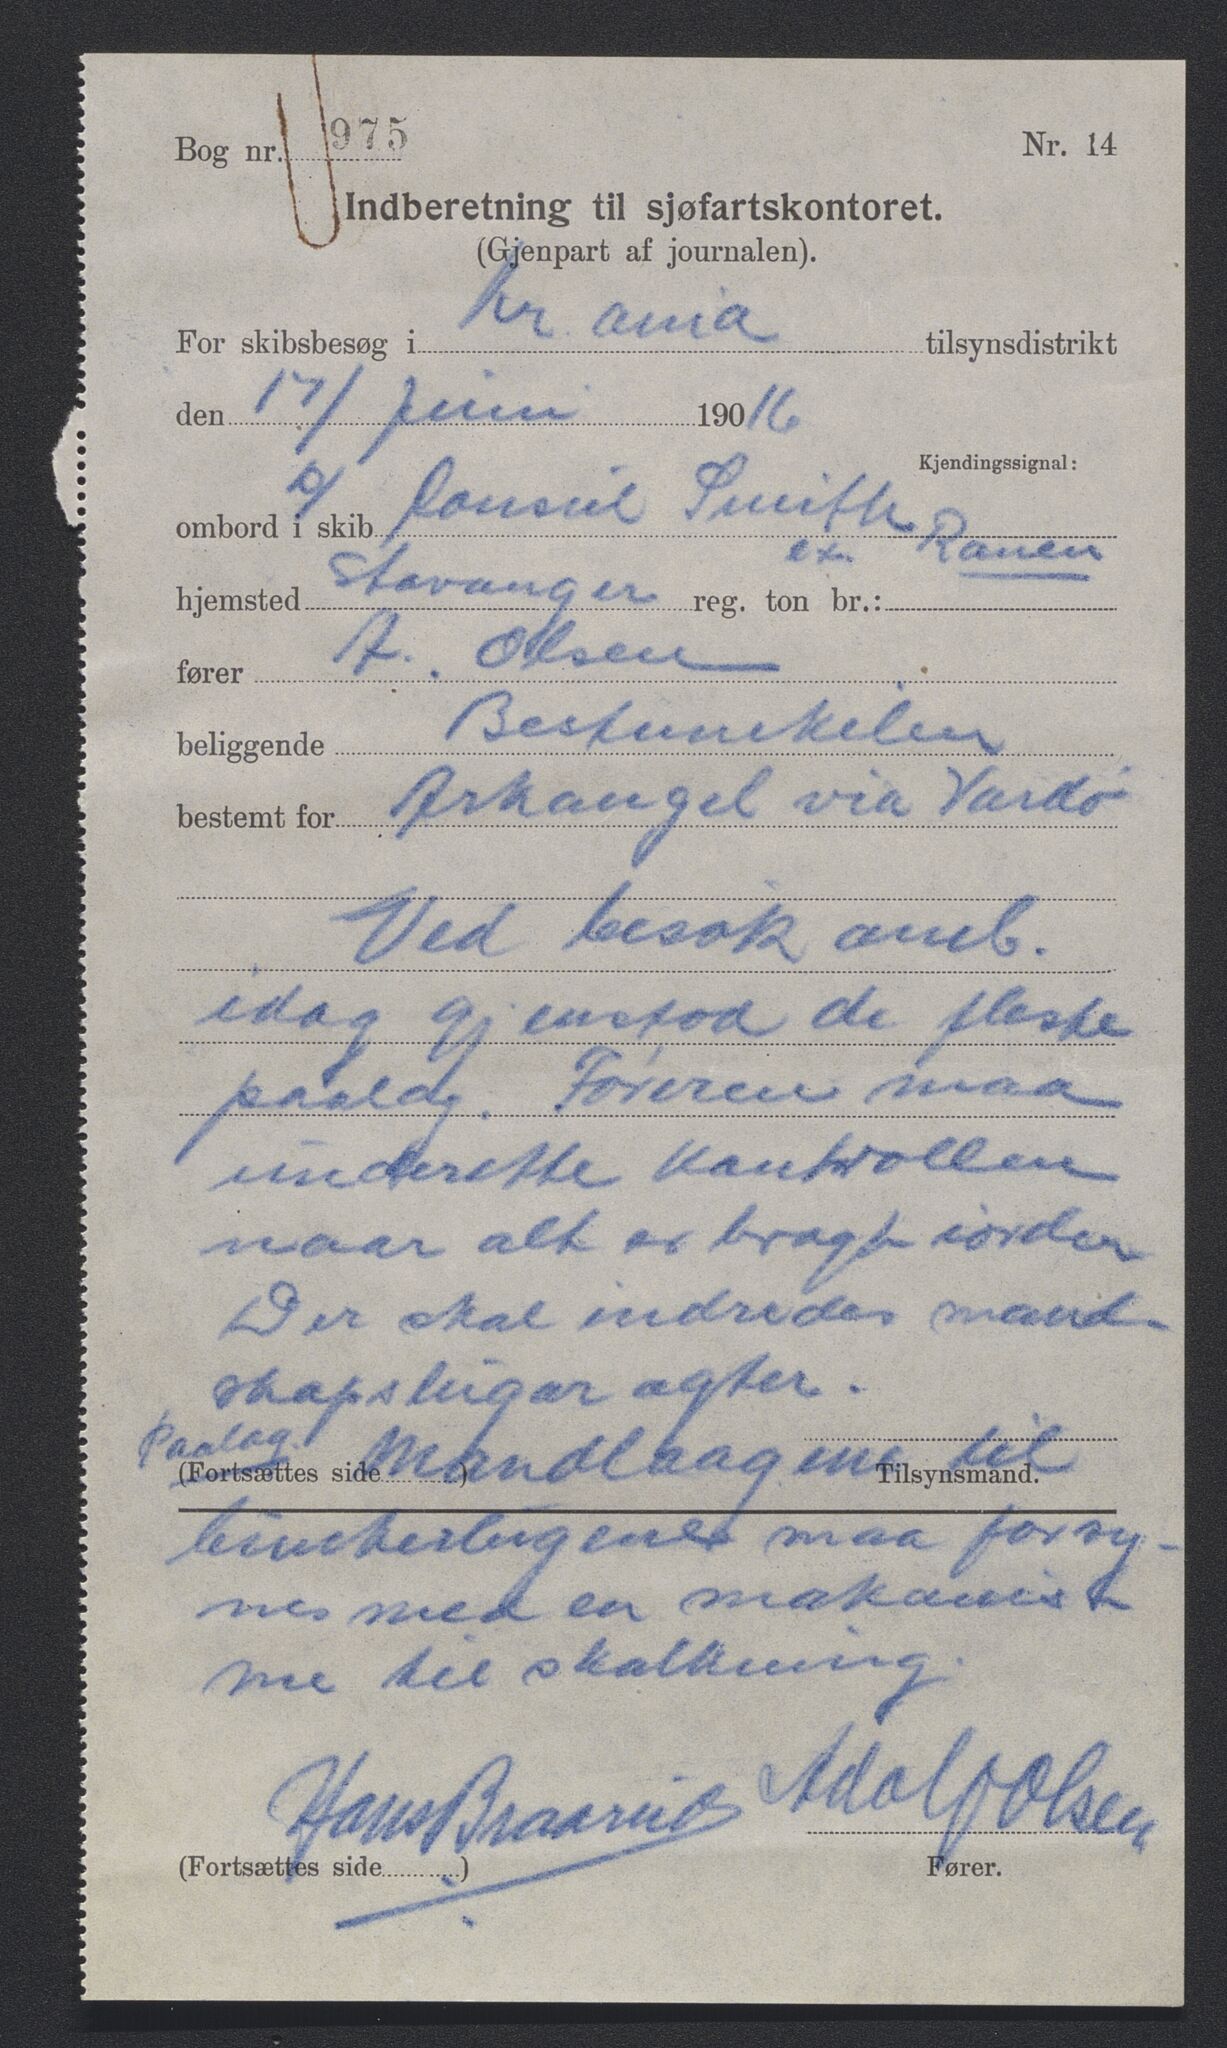 Bog nr. 975 Nr. 14
Indberetning til sjøfartskontoret.
(Gjenpart af journalen).
For skibsbesøg i Kr. ania tilsynsdistrikt
den 17/ juni 19016
Kjendingssignal:
ombord i skib D/ Consul Smith
ex. Ranen
hjemsted Stavanger reg. ton br.:
fører A. Olsen
beliggende Bestumkilen
bestemt for Arkangel via Vardö
Ved besøk omb.
idag gjenstod de fleste
paalæg. Föreren maa
underette kontrollen
naar alt er bragt iorden
Der skal indredes mand-
skapslugar agter.
Paalæg. Mandlaagene til
(Fortsættes side ) Tilsynsmand.
bunkerlugene maa forsy-
nes med en mekanis-
me til skalkning.
Hans Braarud Adolf Olsen
(Fortsættes side ) Fører.